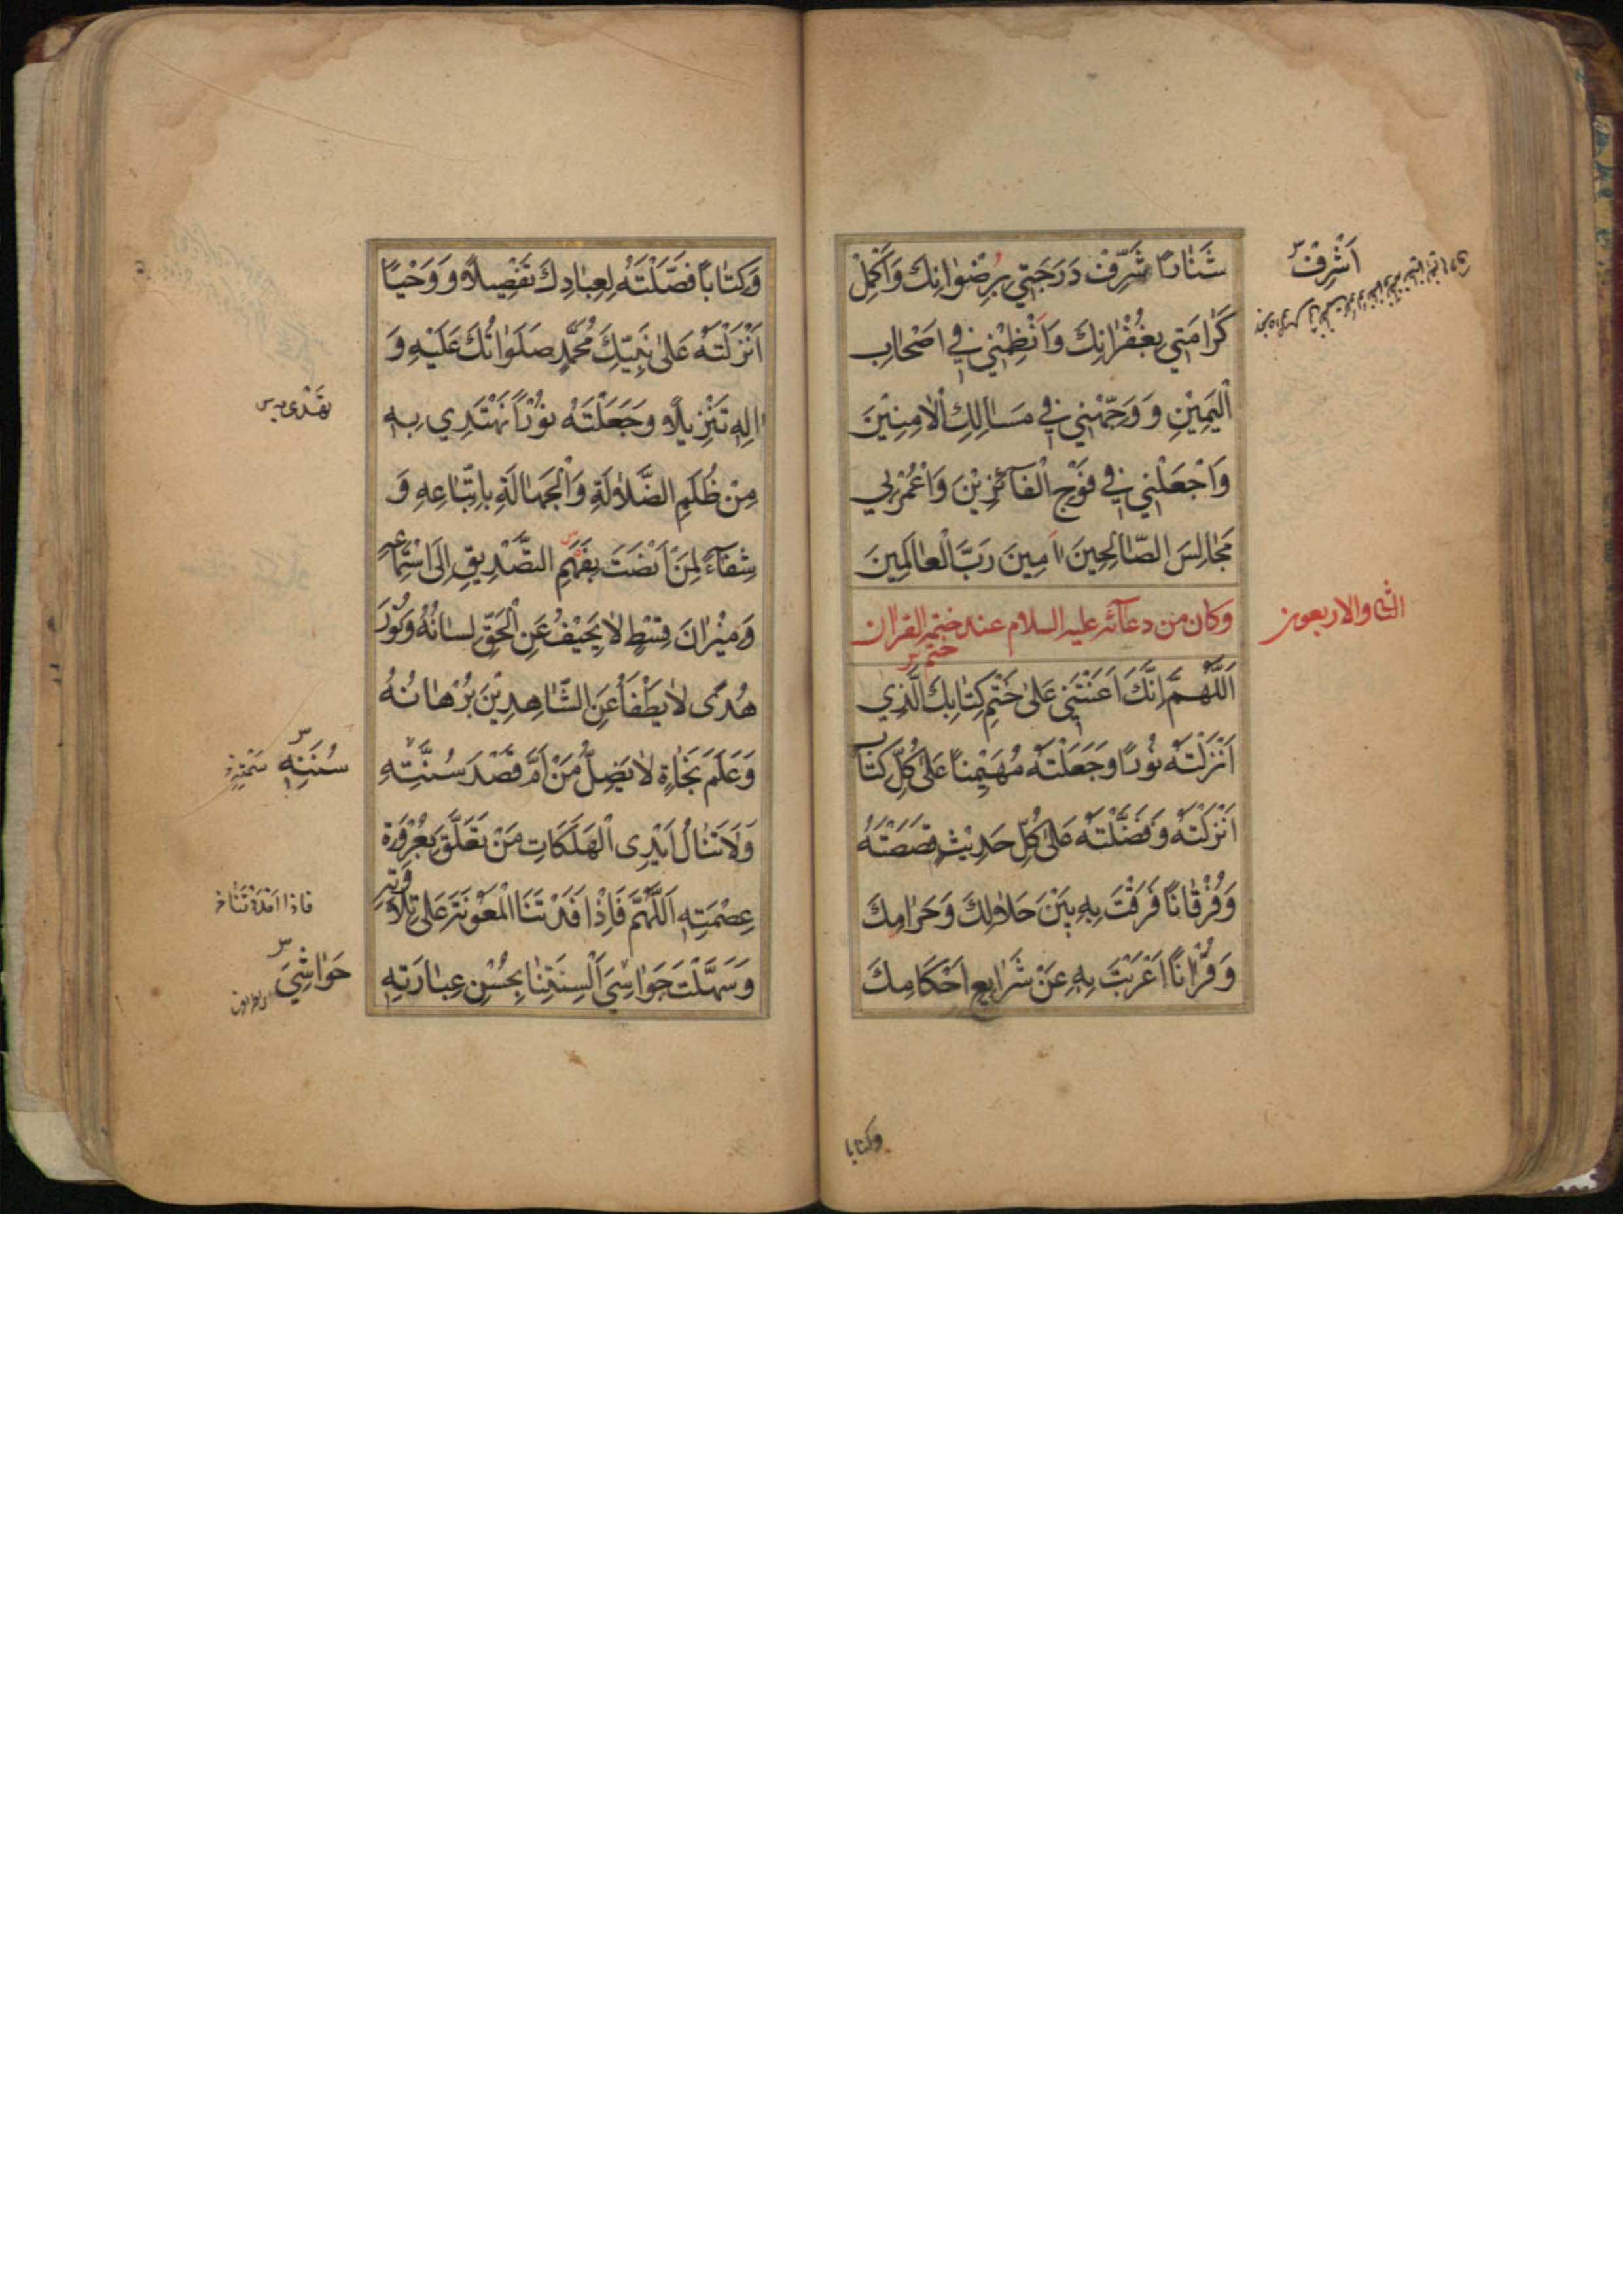 شَنَارًا شَرِّفْ دَرَجَتِي بِرِضْوَانِكَ وَاَكْمِلْ
كَرَامَتِي بِغُفْرَانِكَ وَانْظِمْنِي فِي اَصْحَابِ
الْيَمِيْنِ وَ وَجِّهْنِي فِي مَسَالِكِ الْاٰمِنِيْنَ
وَاجْعَلْنِي فِي فَوْجِ الْفَآئِزِيْنَ وَاعْمُرْ بِي
مَجَالِسَ الصَّالِحِيْنَ اٰمِينَ رَبَّ الْعَالَمِينَ
وكان من دعآئه عليه السلام عند ختمه القران
ختم
اَللّٰهُمَّ اِنَّكَ اَعَنْتَنِي عَلىٰ خَتْمِ كِتَابِكَ الَّذِي
اَنْزَلْتَهُ نُورًا وَجَعَلْتَهُ مُهَيْمِنًا عَلىٰ كُلِّ كِتَابٍ
اَنْزَلْتَهُ وَفَضَّلْتَهُ عَلىٰ كُلِّ حَدِيْثٍ قَصَصْتَهُ
وَفُرْقَانًا فَرَقْتَ بِهِ بَيْنَ حَلَالِكَ وَحَرَامِكَ
وَقُرْاٰنًا اَعْرَبْتَ بِهِ عَنْ شَرَايِعِ اَحْكَامِكَ
وكتابا
اَشْرِفْ
الثانى والاربعون
وَكِتَابًا فَصَّلْتَهُ لِعِبَادِكَ تَفْصِيلًا وَ وَحْيًا
اَنْزَلْتَهُ عَلىٰ نَبِيِّكَ مُحَمَّدٍ صَلَوَاتُكَ عَلَيْهِ وَ
اٰلِهِ تَنْزِيلًا وَجَعَلْتَهُ نُوْرًا نَهْتَدِي بِهِ
مِنْ ظُلَمِ الضَّلَالَةِ وَالْجَهَالَةِ بِاتِّبَاعِهِ وَ
شِفَآءً لِمَنْ اَنْصَتَ بِفَهَمِ التَّصْدِيقِ اِلَى اسْتِمَاعِهِ
وَمِيْزَانَ قِسْطٍ لَا يَحِيْفُ عَنِ الْحَقِّ لِسَانُهُ وَنُوْرَ
هُدًى لَا يَطْفَأُ عَنِ الشَّاهِدِيْنَ بُرْهَانُهُ
وَعَلَمَ نَجَاةٍ لَا يَضِلُّ مَنْ اَمَّ قَصْدَ سُنَّتِهِ
وَلَا تَنَالُ اَيْدِى الْهَلَكَاتِ مَنْ تَعَلَّقَ بِعُرْوَةِ
عِصْمَتِهِ اَللّٰهُمَّ فَاِذْ اَفَدْتَنَا الْمَعُوْنَةَ عَلىٰ تِلَاوَتِهِ
وَسَهَّلْتَ جَوَاسِيَ اَلْسِنَتِنَا بِحُسْنِ عِبَارَتِهِ
سُنَنِهِ
فاذا افدتنا خ
حَوَاشِيَ